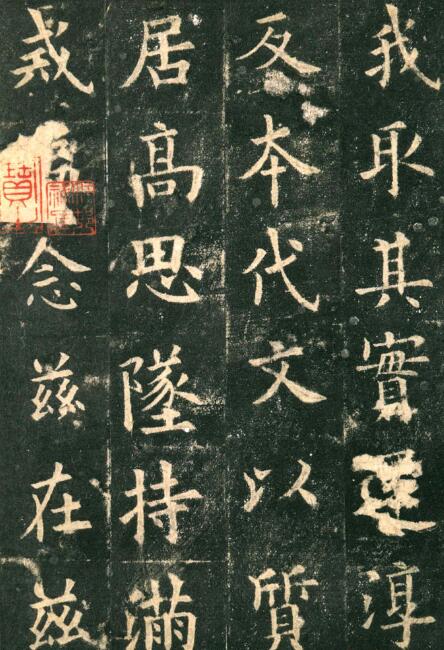 我取其實還淳
反本代文以質
居髙思墜持滿
戒念兹在兹